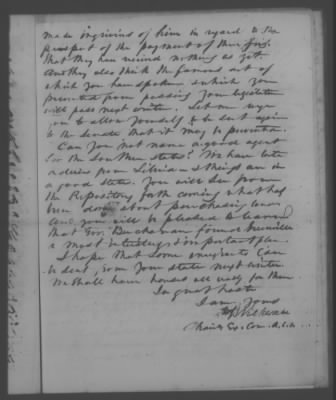 made inquiries of him in regard to the
prospect of the payment of their
that they had received nothing as yet.
And they also think the famous act of
which you have spoken & which you
prevented from passing your legislature
will pass next winter. Let me urge
you to allow yourself to be sent again
to the Senate that it may be prevented.
Can you not name a good agent
for the Southern states? We have late
advices from Liberia & things are in
a good state. You will see from
the Repository forth coming what has
been done about purchasing
and you will be pleased to learn
that Gov. Buchanan found
a most interesting & important place.
I hope that some emigrants can
be sent from your state next winter
We shall have to for them
In great haste
I am yours
Wilkeson
Chairn Ex. Com. A.C.S.